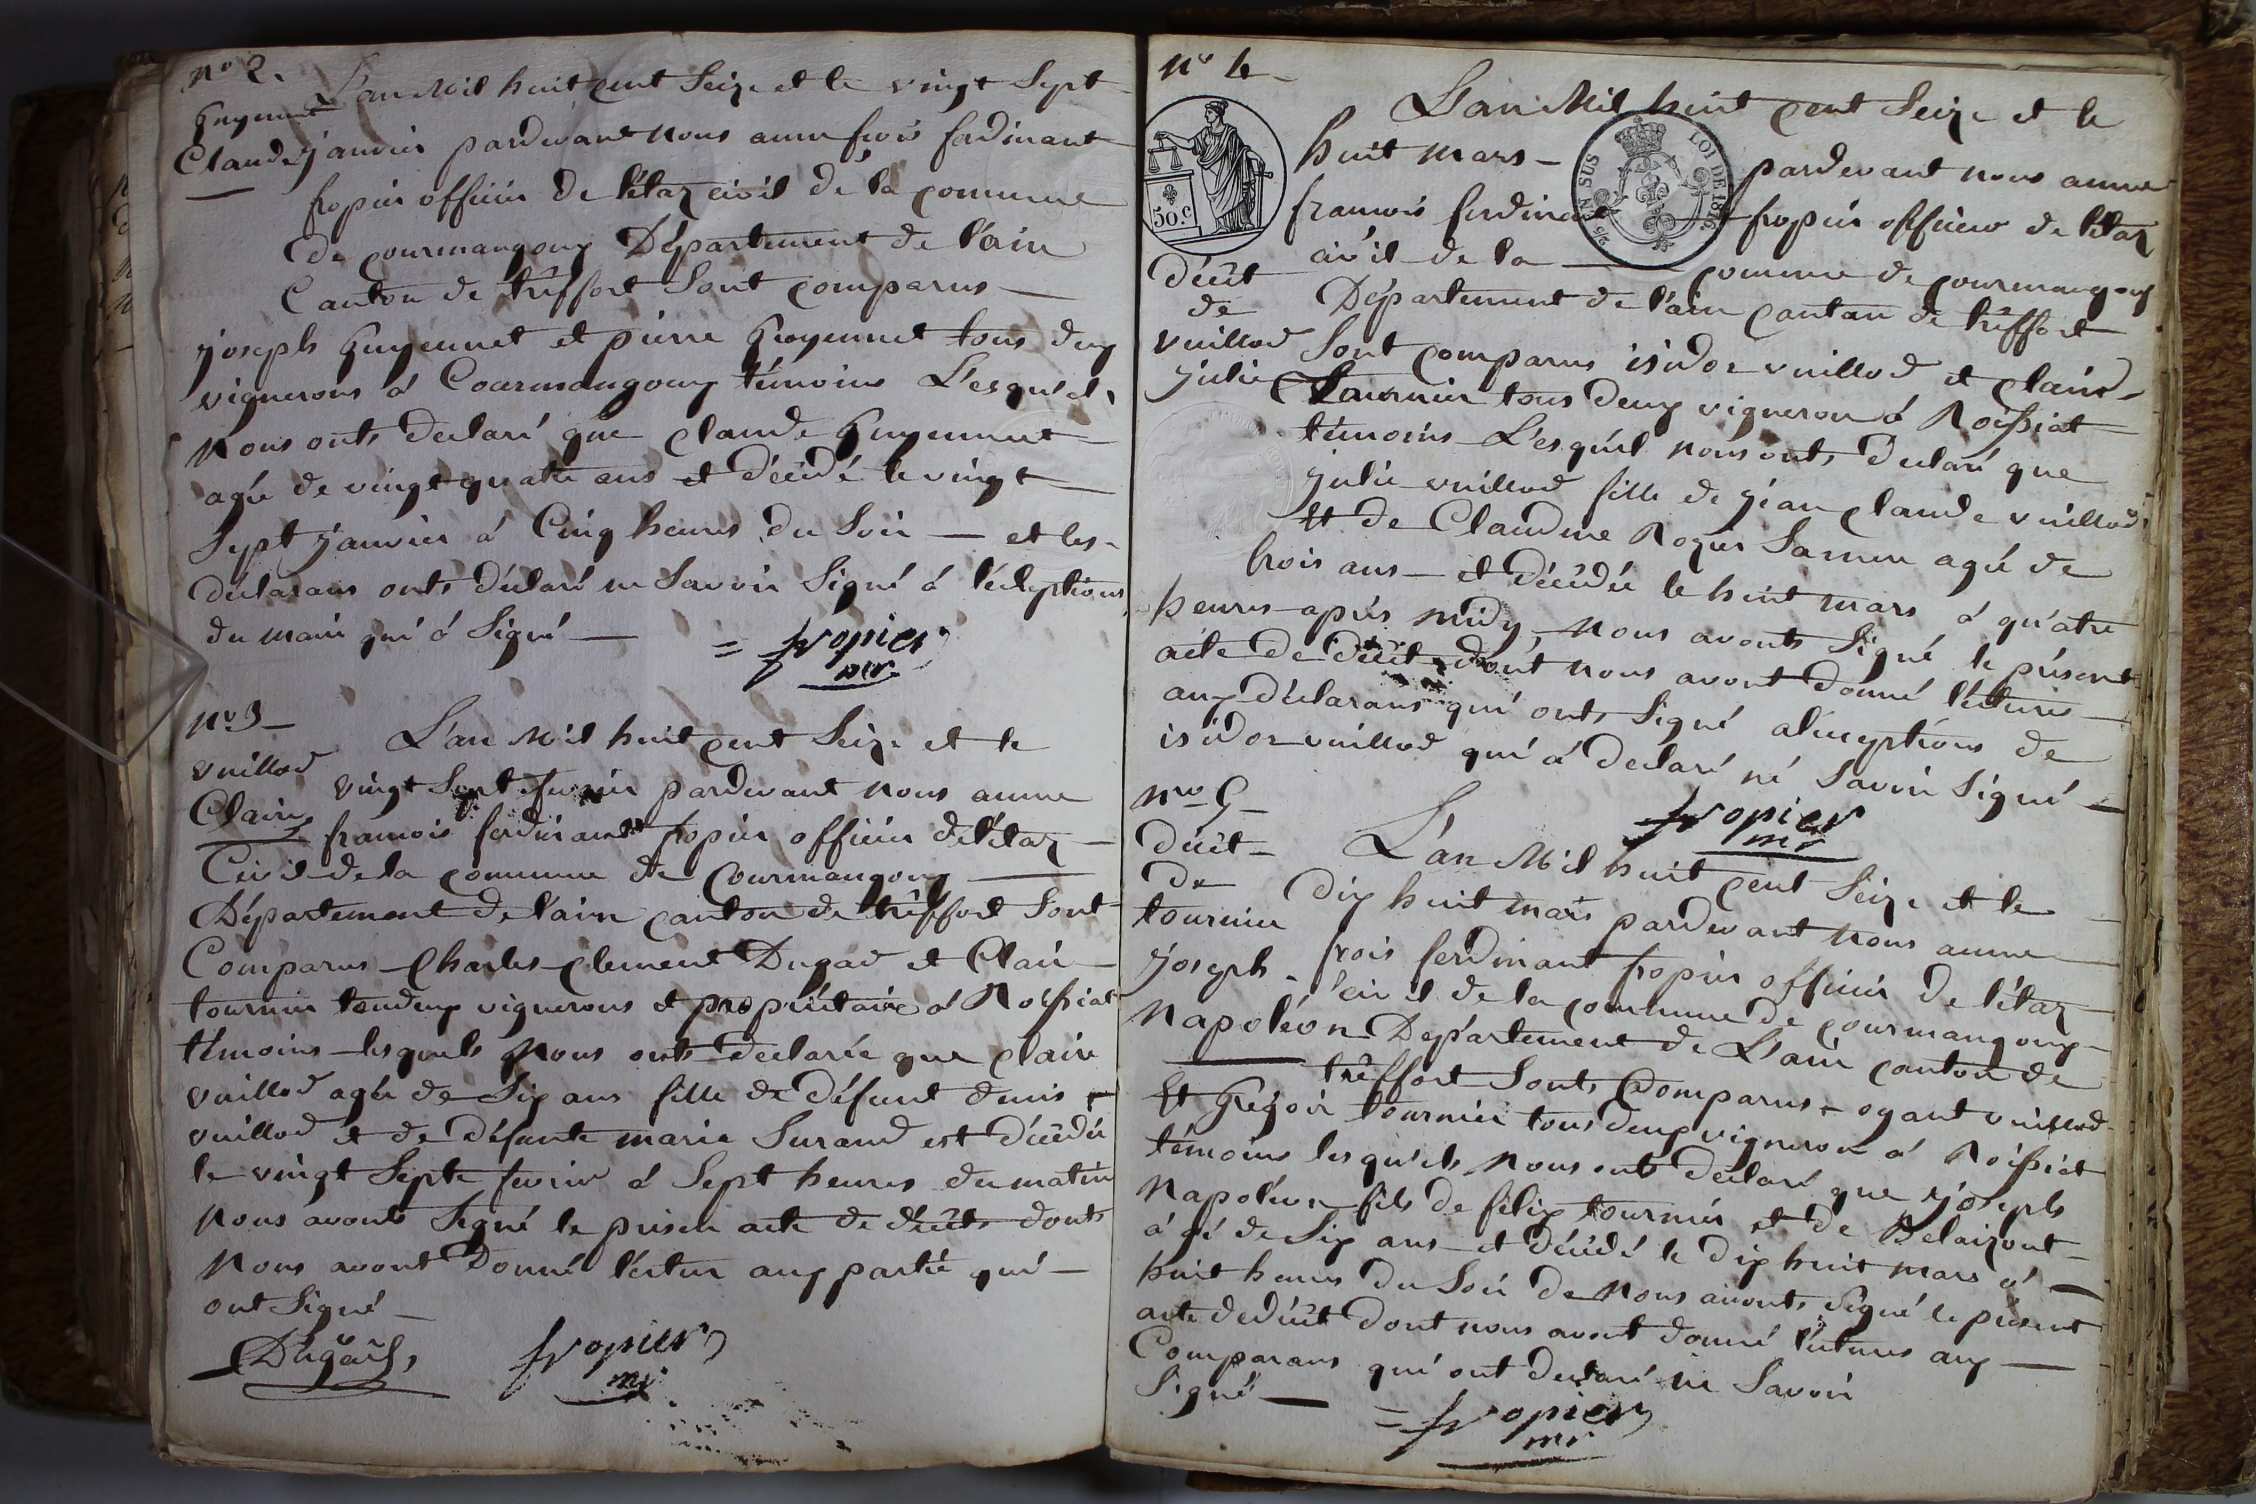 No 2.
guyennet
Claude
L'an Mil huit cent Seize et le vingt Sept
janvier pardevant nous anne frois ferdinant
fropier officier de l'étaz civil de la commune
de courmangoux Département de l'ain
Canton de tréffort Sont comparus
joseph guyennet et pierre guyennet tous deux
vignerons á Courmangoux témoins L'esquels
Nous onts declaré que claude guyennet
agée de vingt quatre ans et décédé le vingt
Sept janvier á Cinq heures du Soir et les
déclarans onts déclaré ne Savoir Signé á l'éxleptions
du maire qui á Signé
= fropier
mr
No 3
vuillod
Clair
L'an Mil huit cent Seize et le
vingt Sept fevrier pardevant nous anne
francois ferdinant fropier officier de l'étaz
Civil de la commune de Courmangoux
Département de l'ain canton de tréffort Sont
Comparus Charles clement Dugad et Clair
tournier toudeux vignerons et propriétaire á Roissiat
témoins lesquels Nous onts declarée que claire
vuillod agée de Six ans fille de défunt denis
vuillod et de défunte marie Surand est décédée
le vingt Septe fevrier á Sept heures du matin
Nous avonts Signé le presen acte de décéts donts
Nous avont Donné l'éctur aux partie qui
ont Signé
Dugad
fropier
mr
No 4
50.C
EN SUS
LOI DE 1816.
décét
de
vuillod
julie
L'an Mil huit cent Seize et le
huit mars pardevant nous anne
francois ferdinant fropier officier de l'étaz
civil de la commune de courmangoux
Département de l'ain canton de tréffort
Sont comparus isidor vuillod et clair
tournier tous deux vigneron á Roissiat
témoins L'esquel nous onts declaré que
julie vuillod fille de jean claude vuillod
et de Claudine Rozier Sa mere agée de
trois ans et décédée le huit mars á qu'atre
heures aprés midy, Nous avonts Signé le présent
acte de décét dont nous avont donné l'éctures
aux déclarans qui onts Signé aléxceptions de
isidor vuillod qui á declaré né Savoir Signé
fropier
mr
No 5
décét
de
tournier
joseph
Napoléon
L'an Mil huit cent Seize et le
dix huit mars pardevant nous anne
frois ferdinant fropier officier de l'étaz
civil de la commune de courmangoux
Département de L'ain canton de
tréffort Sonts Comparus oyant vuillod
Et Grégoir tournier tous deux vigneron á Roissiat
témoins lesqu'els Nous onts declaré que joseph
Napoléon fils de félix tournier et de Belaizont
ágé de Six ans et décédé le dix huit mars á
huit heures du Soir de Nous avonts Signé le présent
acte de décét dont nous avont donné l'éctures aux
Comparans qui ont declaré ne Savoir
Signé
= fropier
mr